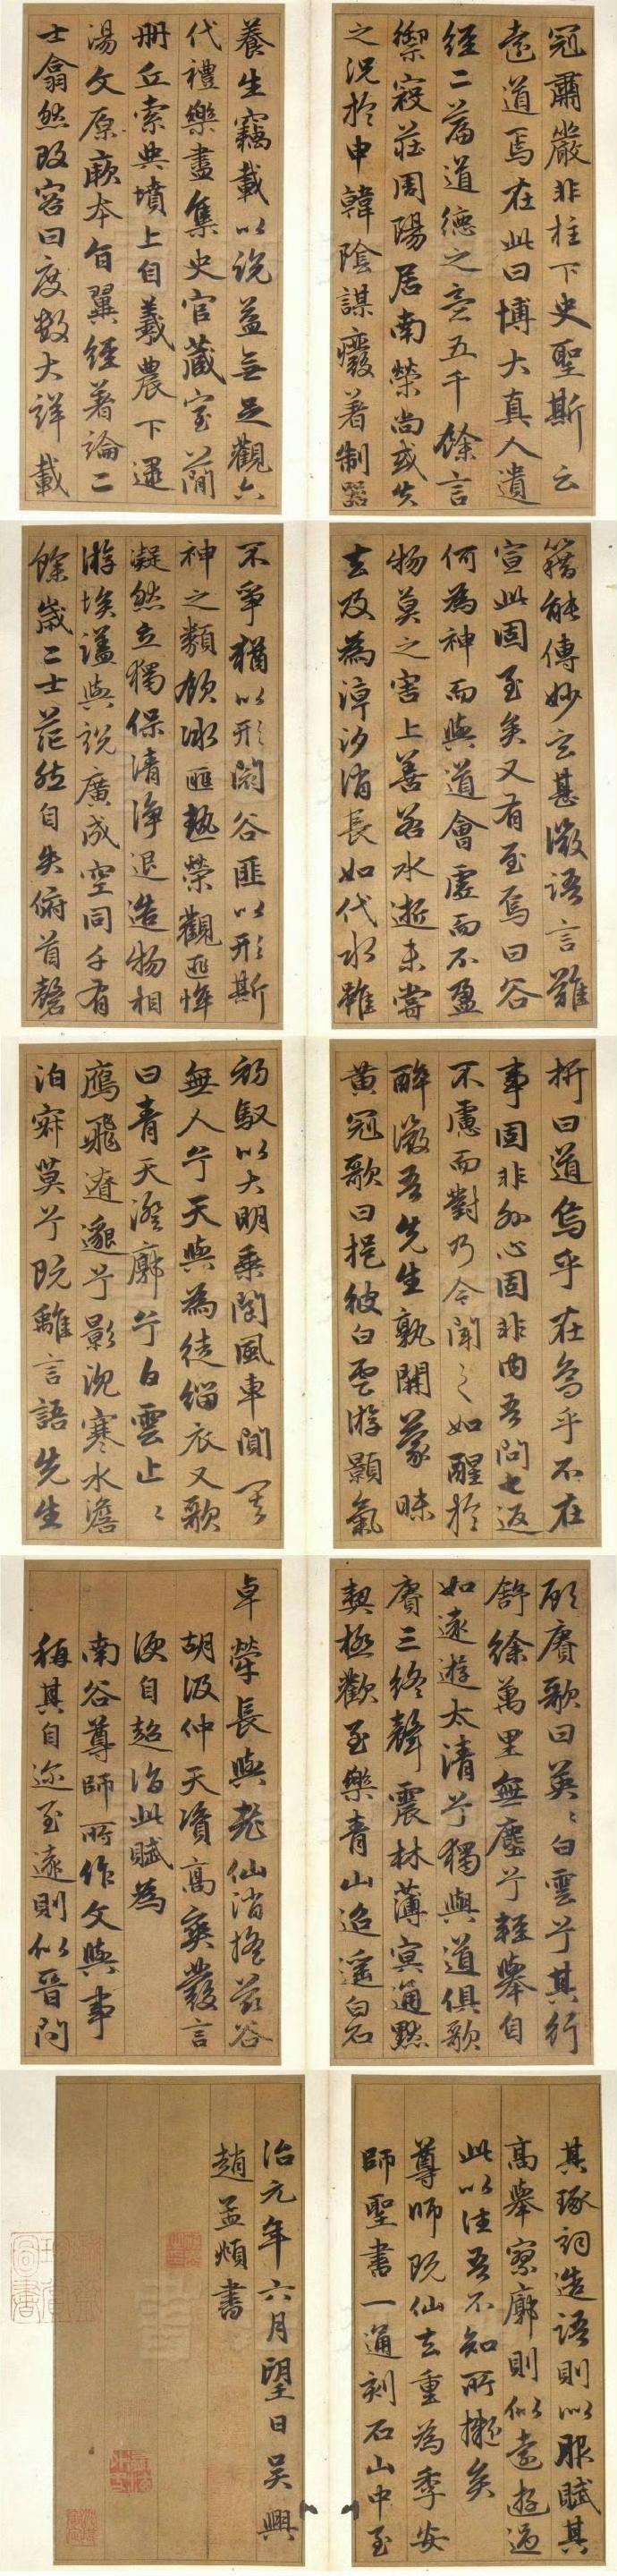 冠肅嚴非柱下史聖斯云
遠道焉在此曰博大真人遺
經二篇道德之意五千餘言
禦寇莊周陽居南榮尚或失
之況於申韓陰謀癈著制器
養生竊載以說益無足觀六
代禮樂盡集史官藏室簡
冊丘索典墳上自羲農下逮
湯文原厥本旨翼經著論二
士翕然改容曰度數大詳載
籍能傳妙玄甚微語言難
宣此固至矣又有至焉曰谷
何為神而與道會虛而不盈
物莫之害上善若水逝未嘗
去及為漳汐消長如代水雖
不爭猶以形闕谷匪以形斯
神之類領冰匪熱榮觀匪悴
凝然立獨保清淨退造物相
游埃壒與說廣成空同千有
餘歲二士茫然自失俯首磬
折曰道烏乎在烏乎不在
事固非外心固非內吾問也返
不慮而對乃今聞之如醒於
醉微吾先生孰開蒙昧
黃冠歌曰挹彼白雲游顥氣
初馭以大明乘閬風車闃其
無人兮天與為徒緇衣又歌
曰青天澄廓兮白雲止〻
鷹飛遼邈兮影沉寒水澹
泊寂莫兮既離言語先生
頎賡歌曰英〻白雲兮其行
舒徐萬里無塵兮輕舉自
如遠遊太清兮獨與道俱歌
賡三終聲震林薄冥通黙
契極歡至樂青山迢遥白石
卓犖長與老仙消搖茲谷
胡汲仲天資高爽發言
便自超詣此賦為
南谷尊師所作文與事
稱其自迩至遠則似晉問
其琢詞造語則似服賦其
高舉寥廓則似遠遊過
此以往吾不知所擬矣
尊師既仙去重為季安
師聖書一通刻石山中至
治元年六月望日吳興
趙孟頫書